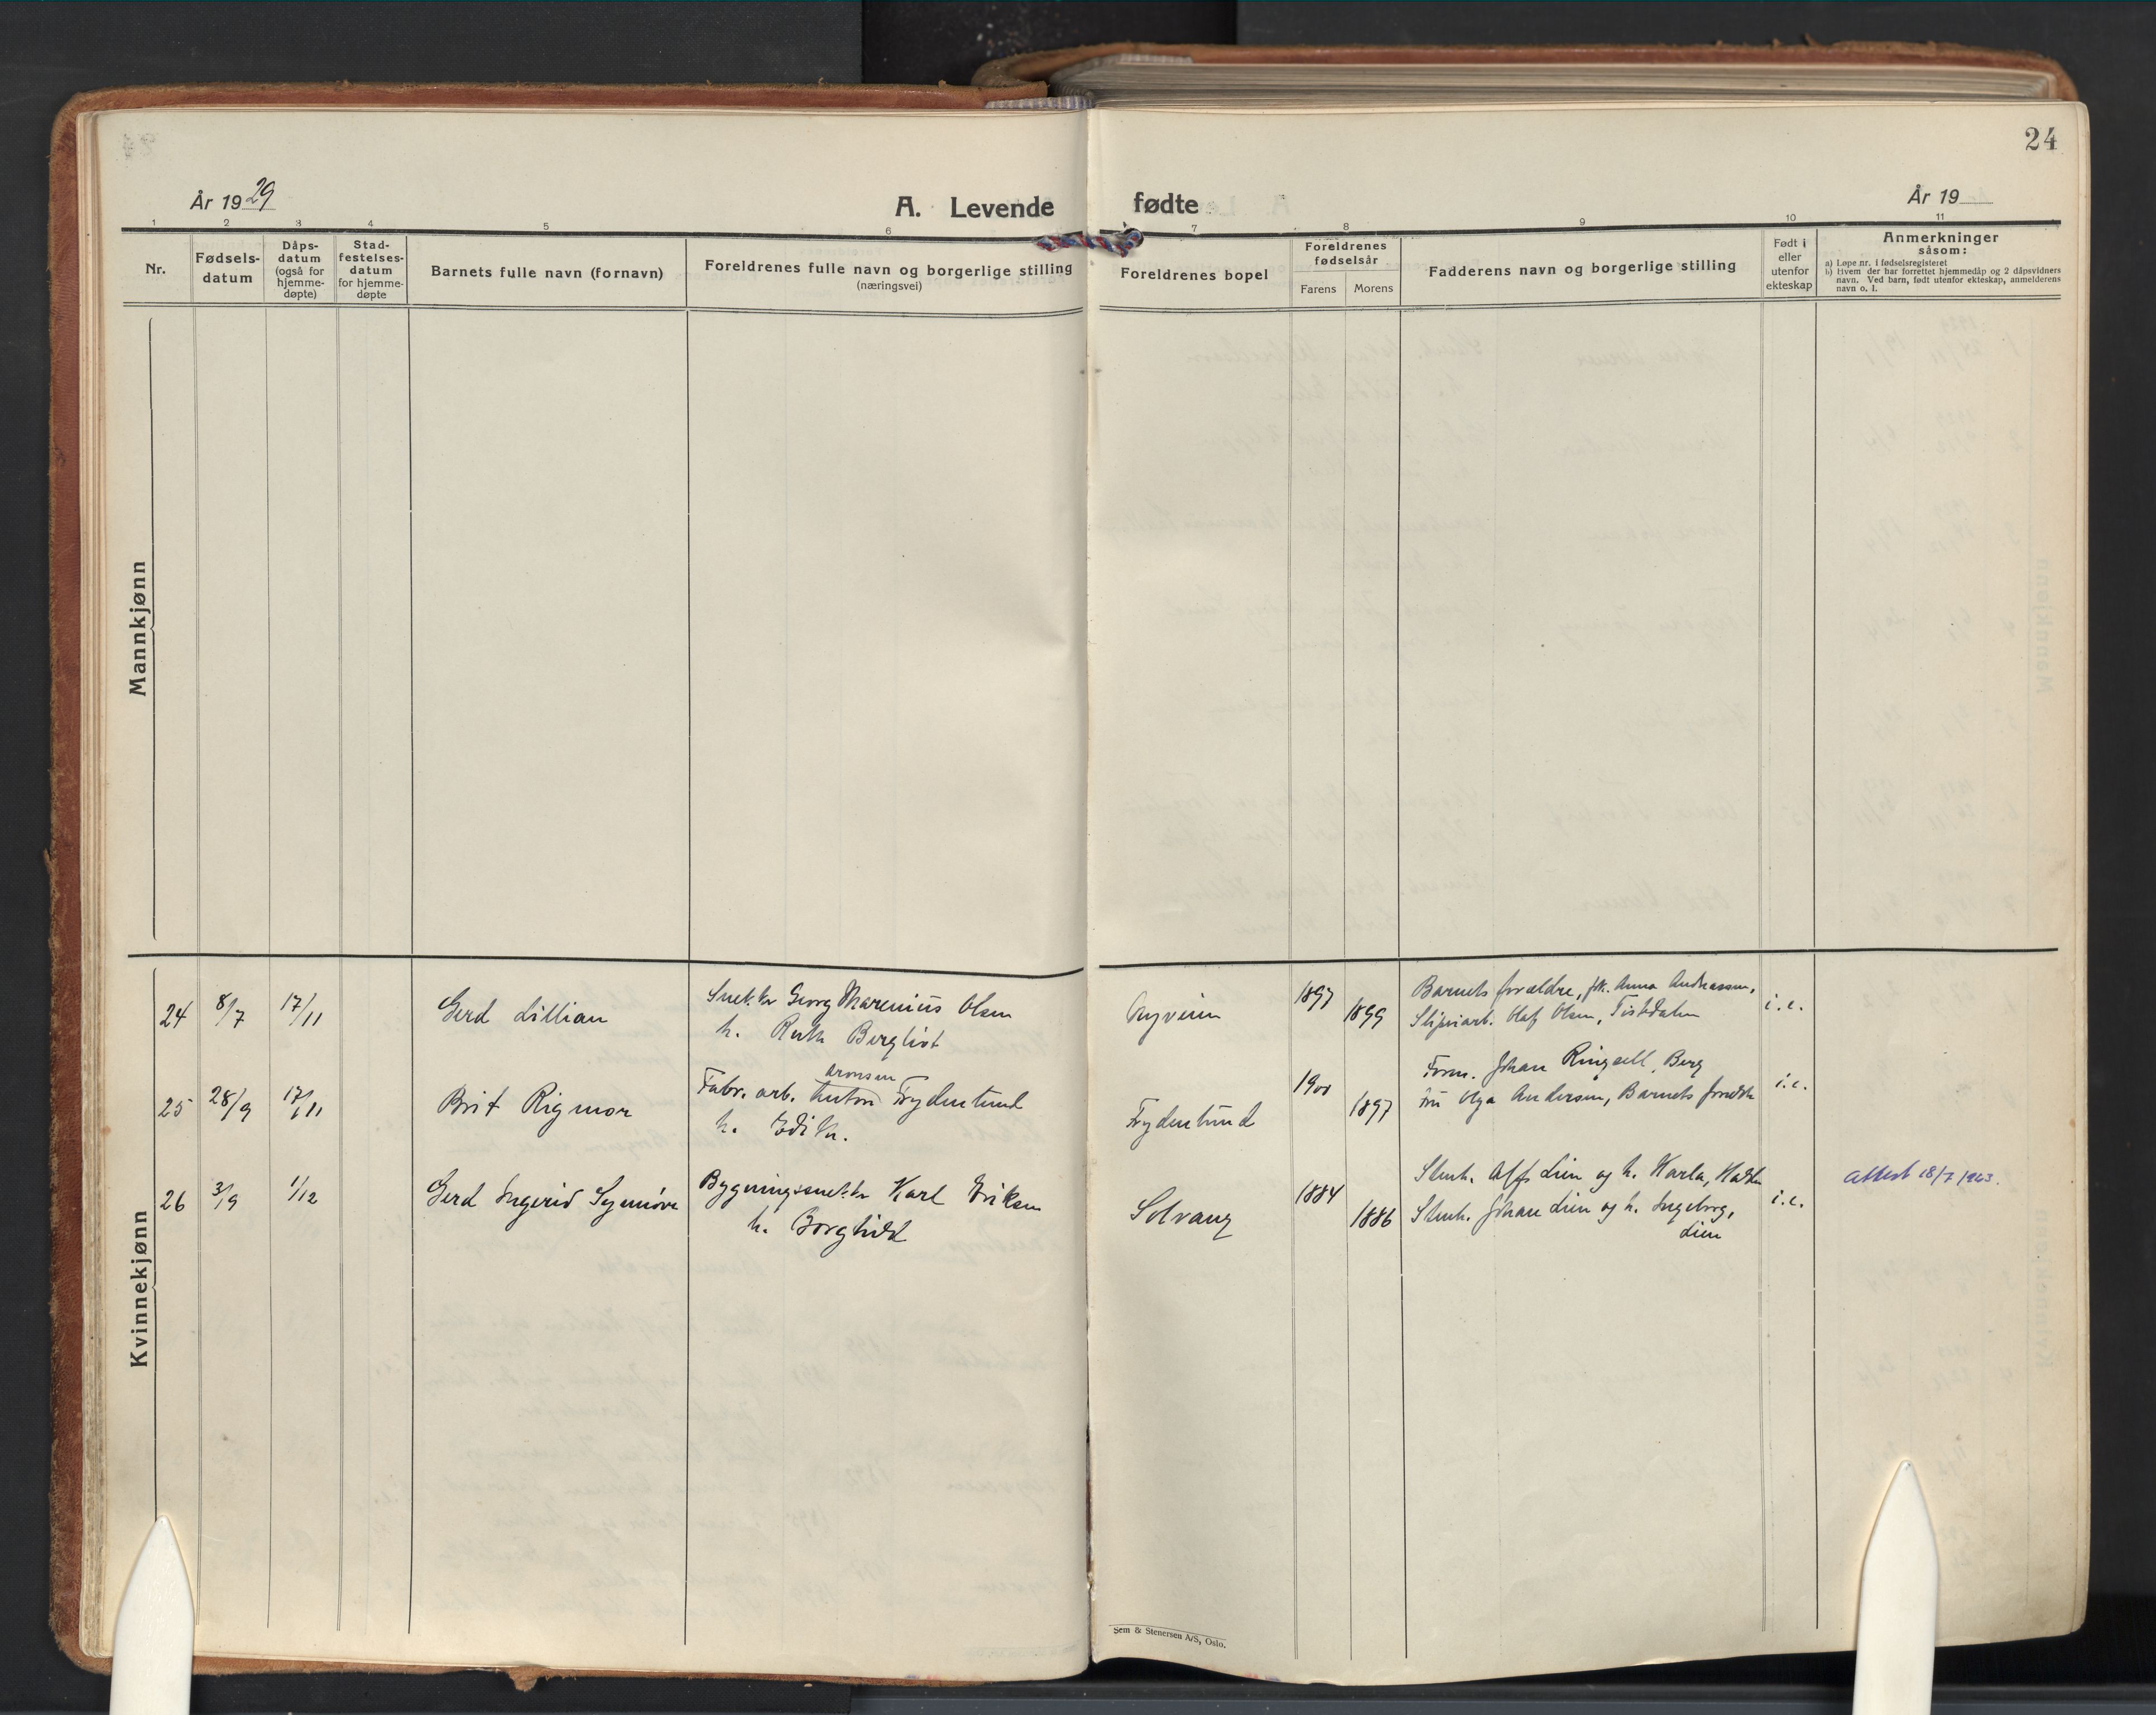 24
År 1929
A. Levende fødte
År 19
1 2 3 4 5 6 7 8 9 10 11
Nr.
Fødsels-
datum
Dåps-
datum
(også for
hjemme-
døpte)
Stad-
festelses-
datum
for hjemme-
døpte
Barnets fulle navn (fornavn)
Foreldrenes fulle navn og borgerlige stilling
(næringsvei)
Foreldrenes bopel
Foreldrenes
fødselsår
Farens Morens
Fadderens navn og borgerlige stilling
Født i
eller
utenfor
ekteskap
Anmerkninger
såsom:
a) Løpe nr. i fødselsregisteret
b) Hvem der har forrettet hjemmedåp og 2 dåpsvidners
navn. Ved barn, født utenfor ekteskap, anmelderens
navn o. l.
Mannkjønn
Kvinnekjønn
24 8/7 17/11 Gerd Lillian
Snekker Georg Marenius Olsen
h. Ruth Bergliot
1897 1899
Barnets forældre, frk. Anna Andreassen,
Sliperiarb. Olaf Olsen, Tistedalen
i. e.
25 28/9 17/11 Brit Rigmor
Aronsen
Fabr. arb. Anton Frydenlund
h. Edith.
Frydenlund
1900 1897
Form. Johan Ringsell, Berg
Fru Olga Andersen, Barnets forældre
i. e.
26 3/9 1/12 Gerd Ingerid Synnøve
Bygningssnekker Karl Eriksen
h. Borghild
Solvang
1884 1886
Stenh. Alf Lien og h. Karla, Halden
Stenh. Johan Lien og h. Ingeborg,
Lien
i. e.
Attest 18/7 1943.
Sem & Stenersen A/S, Oslo.